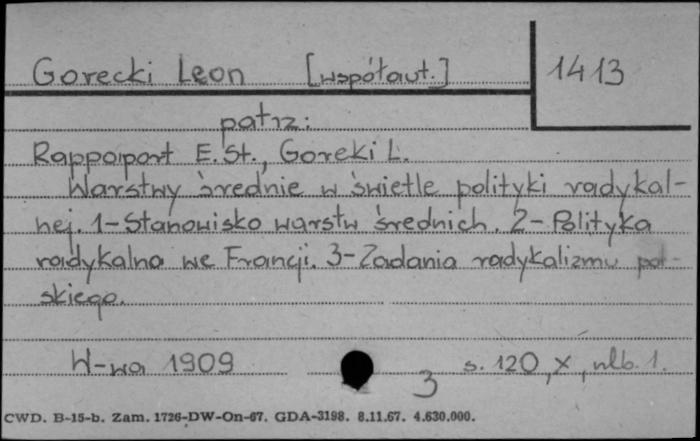 Gorecki Leon [współaut.] 1413
patrz:
Rappaport E. St., Goreki L.
Warstwy średnie w świetle polityki radykal-
nej. 1-Stanowisko warstw średnich. 2-Polityka
radykalna we Francji. 3-Zadania radykalizmu pol-
skiego.
W-wa 1909 3 s. 120, X, nlb. 1.
CWD. B-15-b. Zam. 1726-DW-On-67. GDA-3198. 8.11.67. 4.630.000.